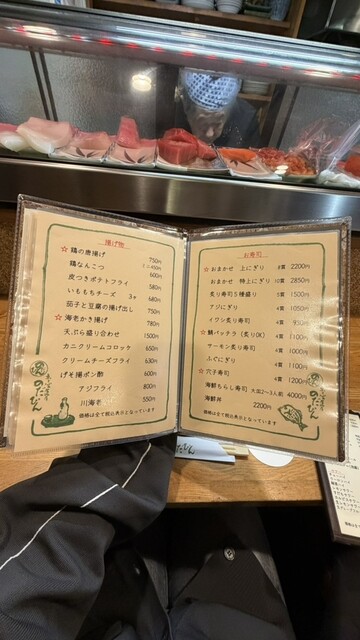 揚げ物
☆ 鶏の唐揚げ 750円
ミニ450円
鶏なんこつ 600円
皮つきポテトフライ 580円
いももちチーズ 3ヶ 680円
茄子と豆腐の揚げ出し 750円
☆ 海老かき揚げ 780円
天ぷら盛り合わせ 1500円
カニクリームコロッケ 650円
クリームチーズフライ 630円
げそ揚ポン酢 600円
アジフライ 800円
川海老 550円
価格は全て税込表示となっています
のだぴん
お寿司
☆ おまかせ 上にぎり 8貫 2200円
おまかせ 特上にぎり 10貫 2850円
炙り寿司5種盛り 5貫 1500円
アジにぎり 1050円
イワシ炙り寿司 900円
☆ 鯖バッテラ (炙りOK) 1100円
サーモン炙り寿司 1000円
ふぐにぎり 1100円
☆ 穴子寿司 4貫 1200円
海鮮ちらし寿司 大皿2〜3人前 4000円
海鮮丼 2200円
価格は全て税込表示となっています